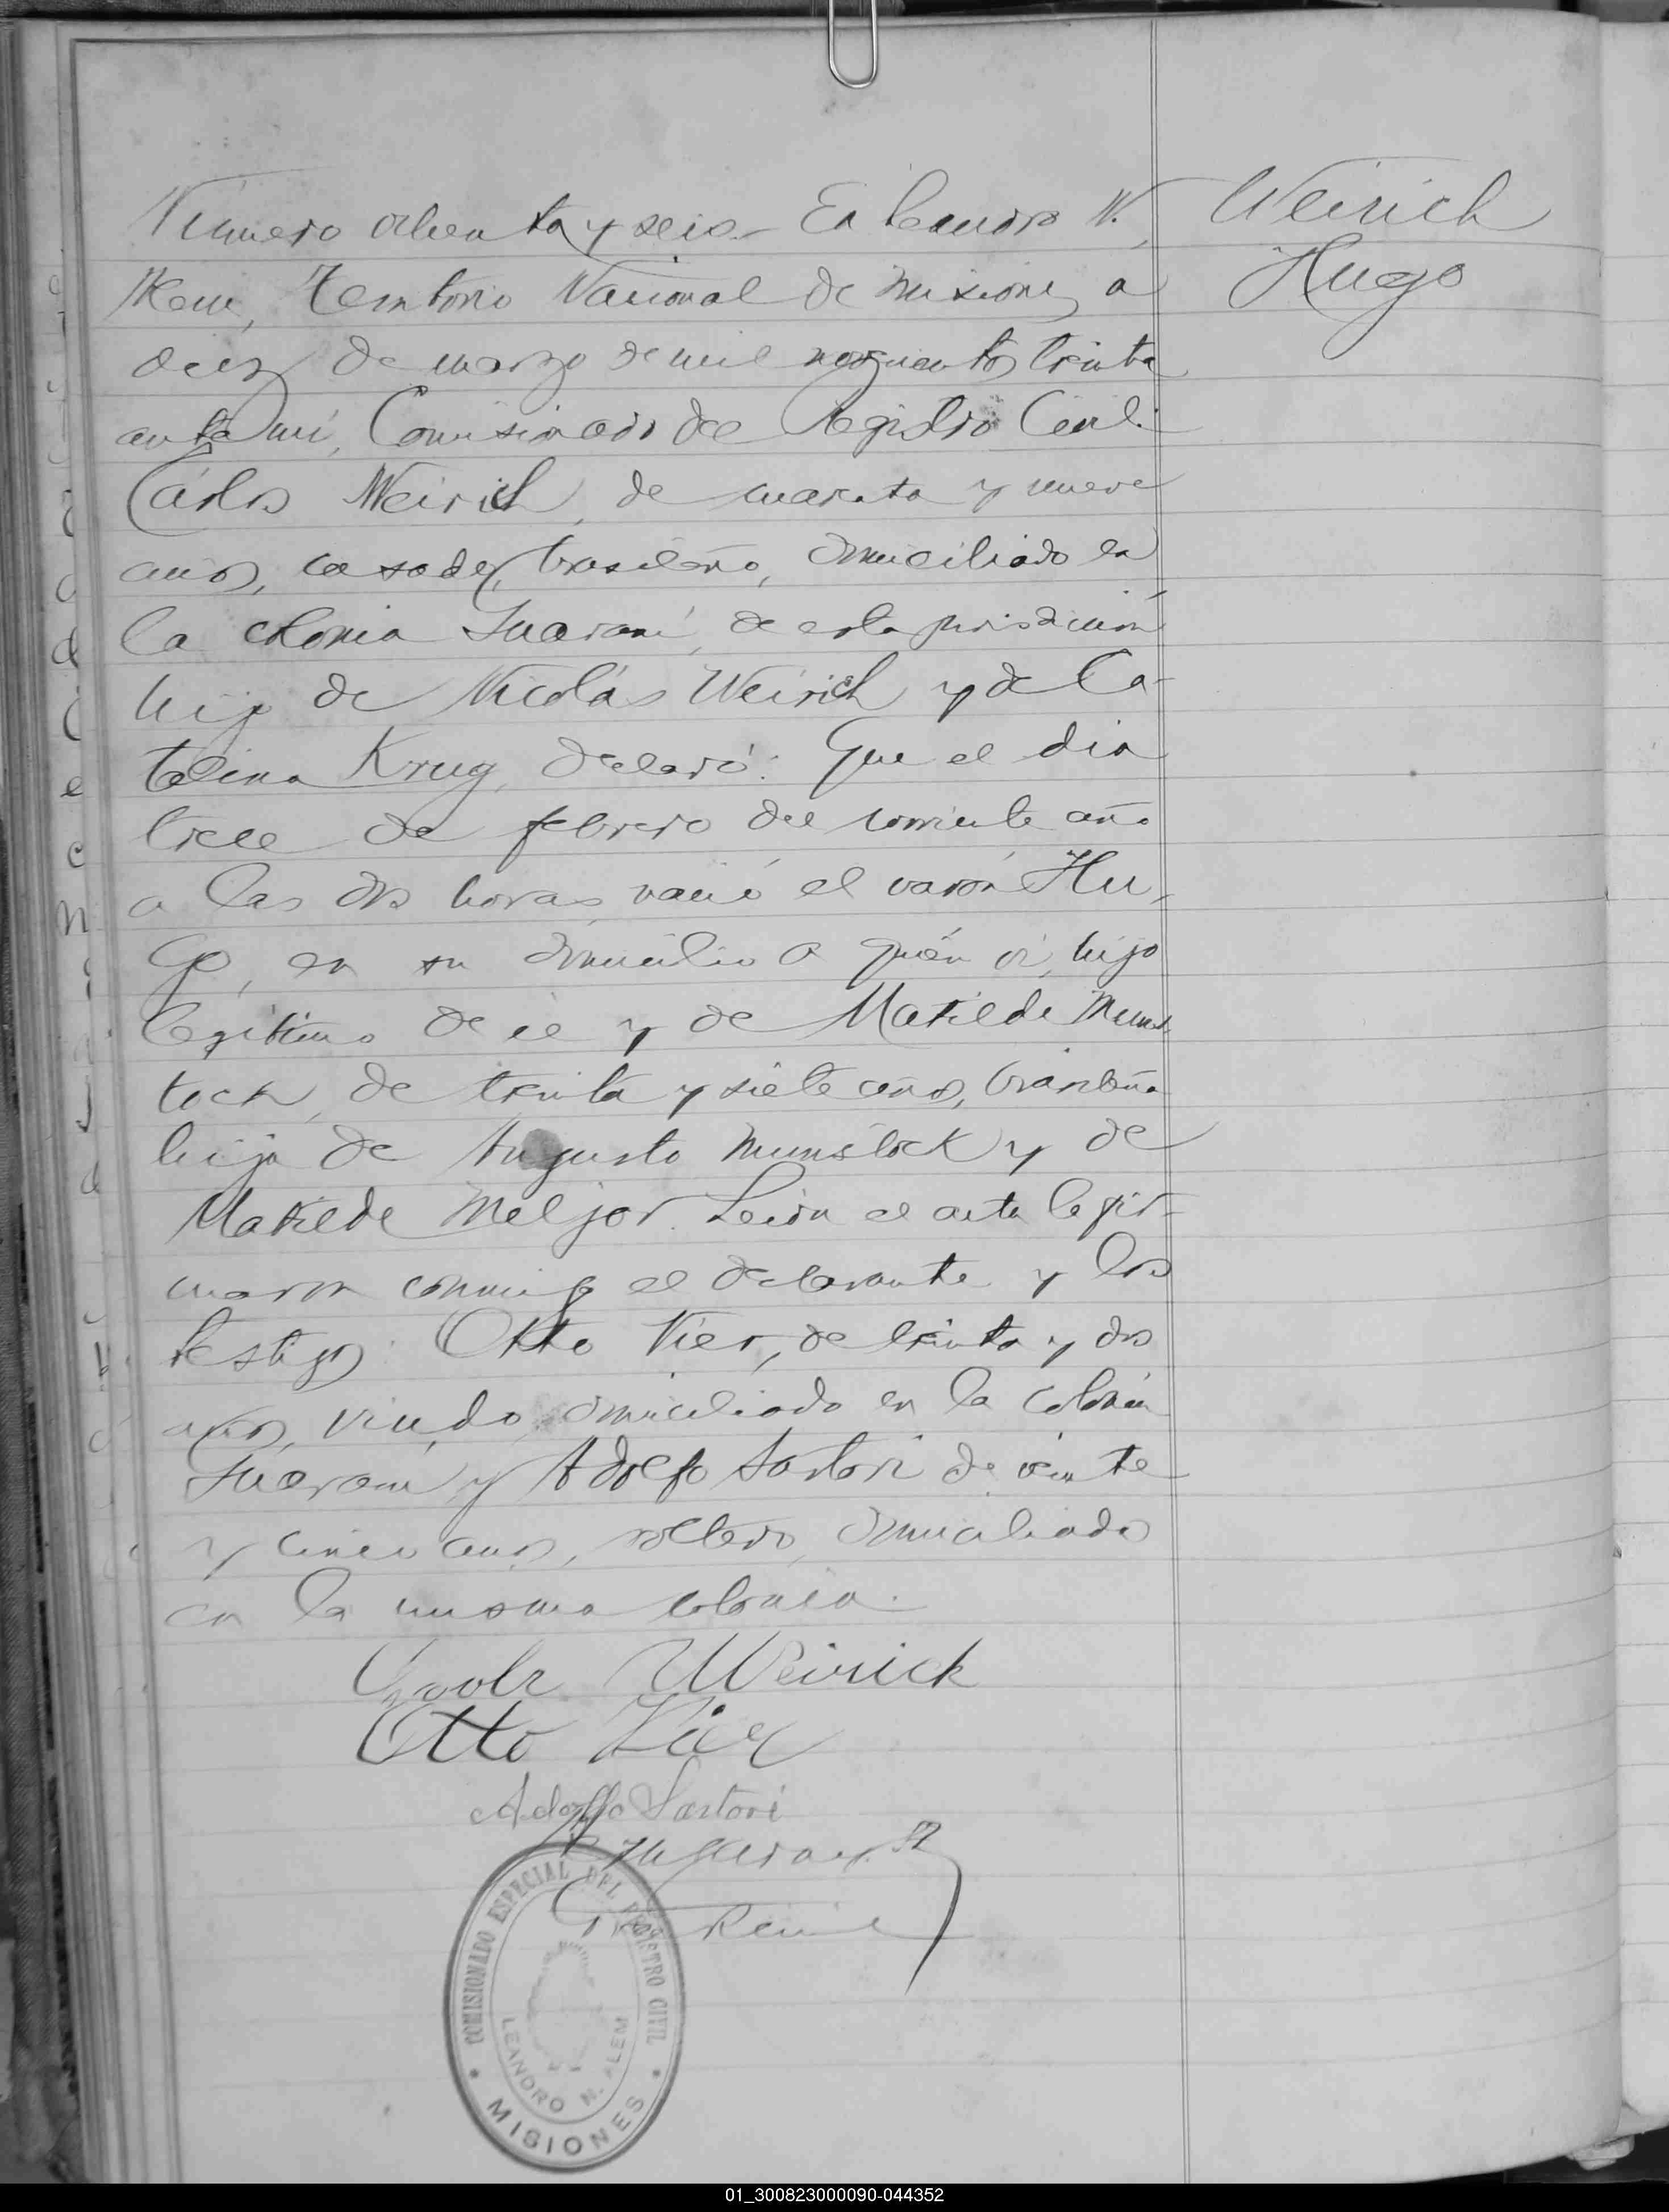 Número ochenta y seis.- En Leandro N.
Alem, Territorio Nacional de Misiones, a
diez de marzo de mil novecientos treinta
ante mí, Comisionado del Registro Civil:
Cárlos Weirich, de cuarenta y nueve
años, casado, brasileño, domiciliado en
la colonia Guaraní, de esta jurisdicción
hijo de Nicolás Weirich y de Ca-
talina Krug, declaró: Que el dia
trece de febrero del corriente año
a las dos horas, nació el varón Hu-
go, en su domicilio a quién ví, hijo
legítimo de él y de Matilde Muns
tock, de treinta y siete años, brasileña
hija de Augusto Munstock y de
Matilde Meljor. Leida el acta la fir-
maron conmigo el declarante y los
testigos: Otto Vier, de treinta y dos
años, viudo, domiciliado en la colonia
Guaraní y Adolfo Sartori de veinte
y cinco años, soltero, domiciliado
en la misma colonia.
Weirick
Otto Vier
Adolfo Sartori
COMISIONADO ESPECIAL DEL REGISTRO CIVIL
LEANDRO N. ALEM
MISIONES
Weirich
Hugo
01_300823000090-044352